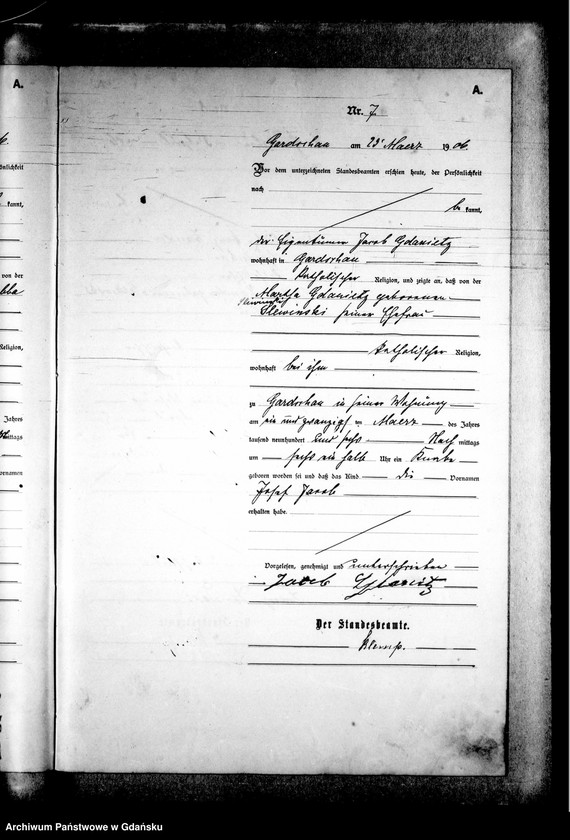 A.
A.
Nr. 7.
Gardschau am 23t Maerz 1906.
Vor dem unterzeichneten Standesbeamten erschien heute, der Persönlichkeit
nach
be kannt,
der Eigentümer Jacob Gdanietz
wohnhaft in Gardschau
katholischer Religion, und zeigte an, daß von der
Martha Gdanietz geborenen
Slewinski seiner Ehefrau
katholischer Religion,
wohnhaft bei ihm
zu Gardschau in seiner Wohnung
am ein und zwanzigst en Maerz des Jahres
tausend neunhundert und sechs Nach mittags
um sechs ein halb Uhr ein Knabe
geboren worden sei und daß das Kind die Vornamen
Josef Jacob
erhalten habe.
Vorgelesen, genehmigt und unterschrieben
Jacob
Der Standesbeamte.
Klemp.
kannt,
von der
Religion,
Jahres
mittags
Vornamen
Archiwum Państwowe w Gdańsku